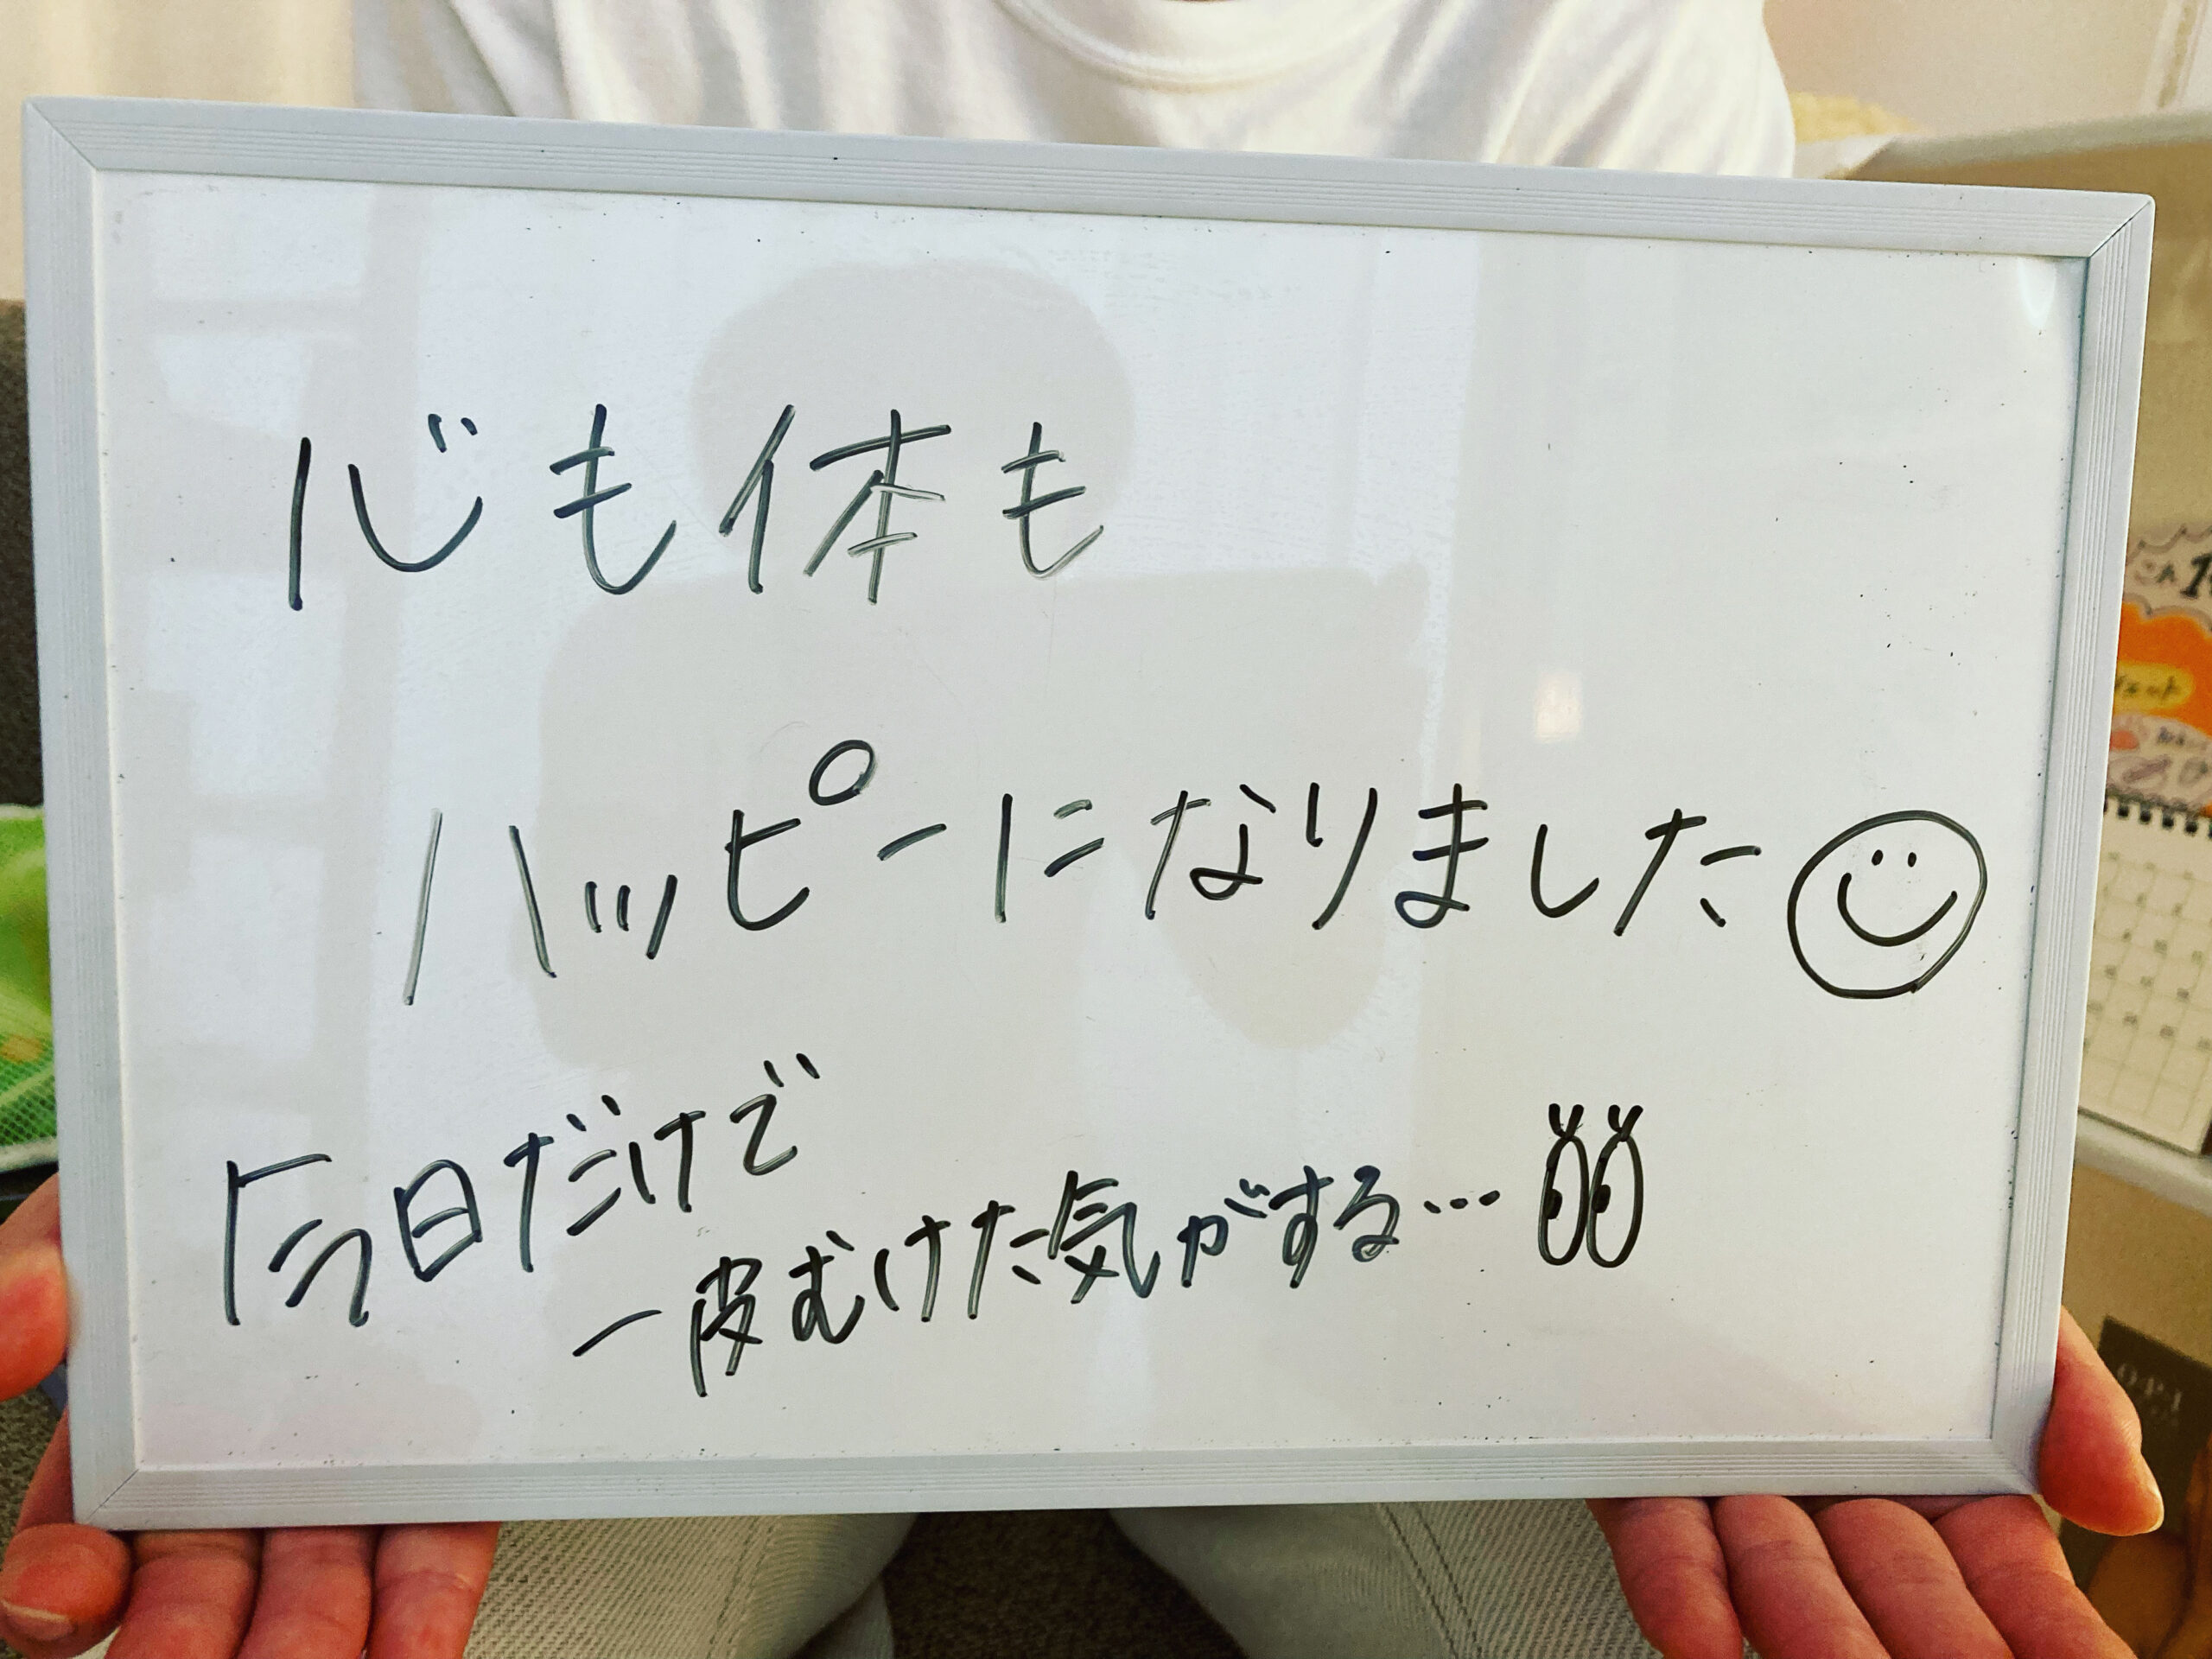 心も体も
ハッピーになりました
「今日だけで
一皮むけた気がする…